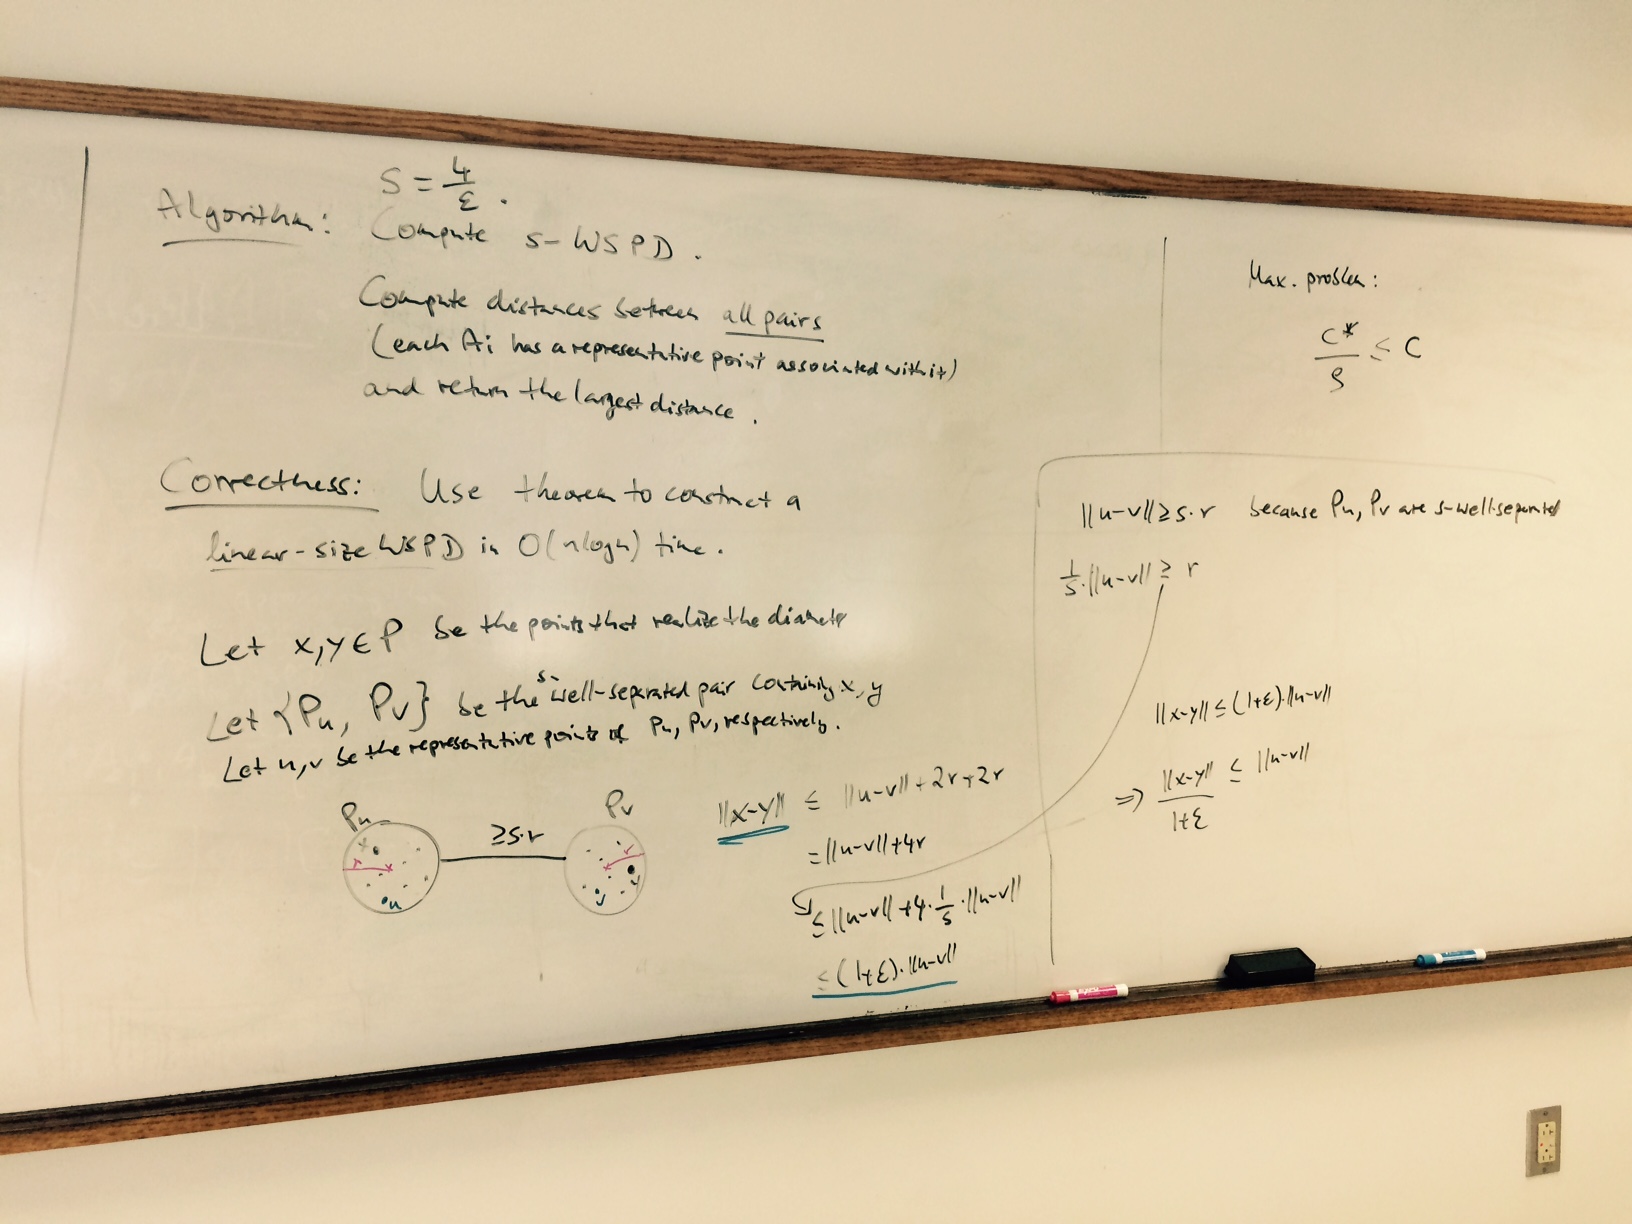 Algorithm: S = 4/ε .
Compute s-WSPD .
Compute distances between all pairs
(each Ai has a representative point associated with it)
and return the largest distance .
Correctness: Use theorem to construct a
linear-size WSPD in O(n log n) time .
Let x, y ∈ P be the points that realize the diameter
Let {Pu, Pv} be the s-well-separated pair containing x, y
Let u, v be the representative points of Pu, Pv, respectively.
Pu ≥ s·r Pv
r x u
r y v
||x-y|| ≤ ||u-v|| + 2r + 2r
= ||u-v|| + 4r
≤ ||u-v|| + 4 · 1/s · ||u-v||
≤ (1+ε) · ||u-v||
Max. problem :
C*/ρ ≤ C
||u-v|| ≥ s·r because Pu, Pv are s-well-separated
1/s · ||u-v|| ≥ r
||x-y|| ≤ (1+ε) · ||u-v||
⇒ ||x-y||/1+ε ≤ ||u-v||